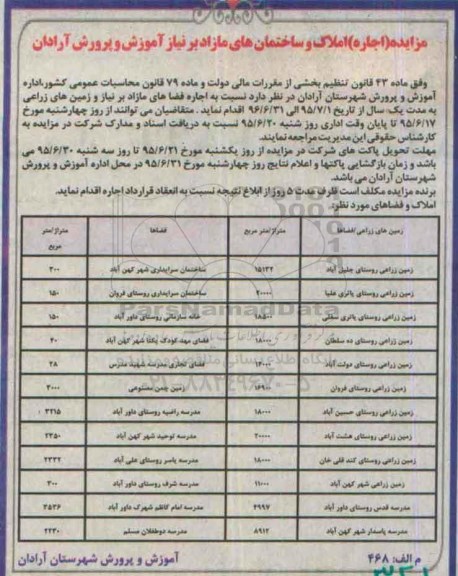 مزایده(اجاره)املاک و ساختمان های مازاد بر نیاز آموزش و پرورش آرادان
وفق ماده ۴۳ قانون تنظیم بخشی از مقررات مالی دولت و ماده ۷۹ قانون محاسبات عمومی کشور،اداره
آموزش و پرورش شهرستان آرادان در نظر دارد نسبت به اجاره فضا های مازاد بر نیاز و زمین های زراعی
به مدت یک سال از تاریخ ۹۵/۷/۱ الی ۹۶/۶/۳۱ اقدام نماید . متقاضیان می توانند از روز چهارشنبه مورخ
۹۵/۶/۱۷ تا پایان وقت اداری روز شنبه ۹۵/۶/۲۰ نسبت به دریافت اسناد و مدارک شرکت در مزایده به
کارشناس حقوقی این مدیریت مراجعه نمایند.
مهلت تحویل پاکت های شرکت در مزایده از روز یکشنبه مورخ ۹۵/۶/۲۱ تا روز سه شنبه ۹۵/۶/۳۰ می
باشد و زمان بازگشایی پاکتها و اعلام نتایج روز چهارشنبه مورخ ۹۵/۶/۳۱ در محل اداره آموزش و پرورش
شهرستان آرادان می باشد.
برنده مزایده مکلف است ظرف مدت ۵ روز از ابلاغ نتیجه نسبت به انعقاد قرارداد اجاره اقدام نماید.
املاک و فضاهای مورد نظر:
زمین های زراعی/فضاها متراژ/متر مربع فضاها متراژ/متر مربع
زمین زراعی روستای جلیل آباد ۱۵۱۳۲ ساختمان سرایداری شهر کهن آباد ۳۰۰
زمین زراعی روستای پاتری علیا ۲۰۰۰۰ ساختمان سرایداری روستای فروان ۱۵۰
زمین زراعی روستای پاتری سفلی ۱۸۵۰۰ خانه سازمانی روستای داور آباد ۱۵۰
زمین زراعی روستای ده سلطان ۱۸۰۰۰ فضای مهد کودک یکتا شهر کهن آباد ۴۰
زمین زراعی روستای دولت آباد ۱۶۰۰۰ فضای تجاری مدرسه شهید مدرس ۲۸
زمین زراعی روستای فروان ۱۶۹۰۰ زمین چمن مصنوعی ۳۰۰۰
زمین زراعی روستای حسین آباد ۱۸۰۰۰ مدرسه راضیه روستای داور آباد ۳۲۱۵
زمین زراعی روستای هشت آباد ۲۰۰۰۰ مدرسه توحید شهر کهن آباد ۲۳۵۰
زمین زراعی روستای کند قلی خان ۱۸۰۰۰ مدرسه یاسر روستای علی آباد ۲۳۳۲
زمین زراعی شهر کهن آباد ۱۱۰۰۰ مدرسه شرف روستای داور آباد ۳۰۰
مدرسه قدس روستای داور آباد ۴۹۹۷ مدرسه امام کاظم شهرک داور آباد ۳۵۳۶
مدرسه پاسدار شهر کهن آباد ۸۹۱۲ مدرسه دوطفلان مسلم ۲۲۳۰
م الف: ۴۶۸
آموزش و پرورش شهرستان آرادان
ParsNamadData
پایگاه اطلاع رسانی مناقصه و مزایده
۰۲۱-۸۸۳۴۹۶۷۰-۵